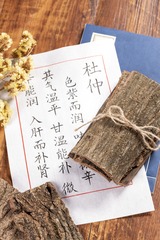 杜仲
色紫而润
辛
其气温平 甘温能补 微
能润 入肝而补肾